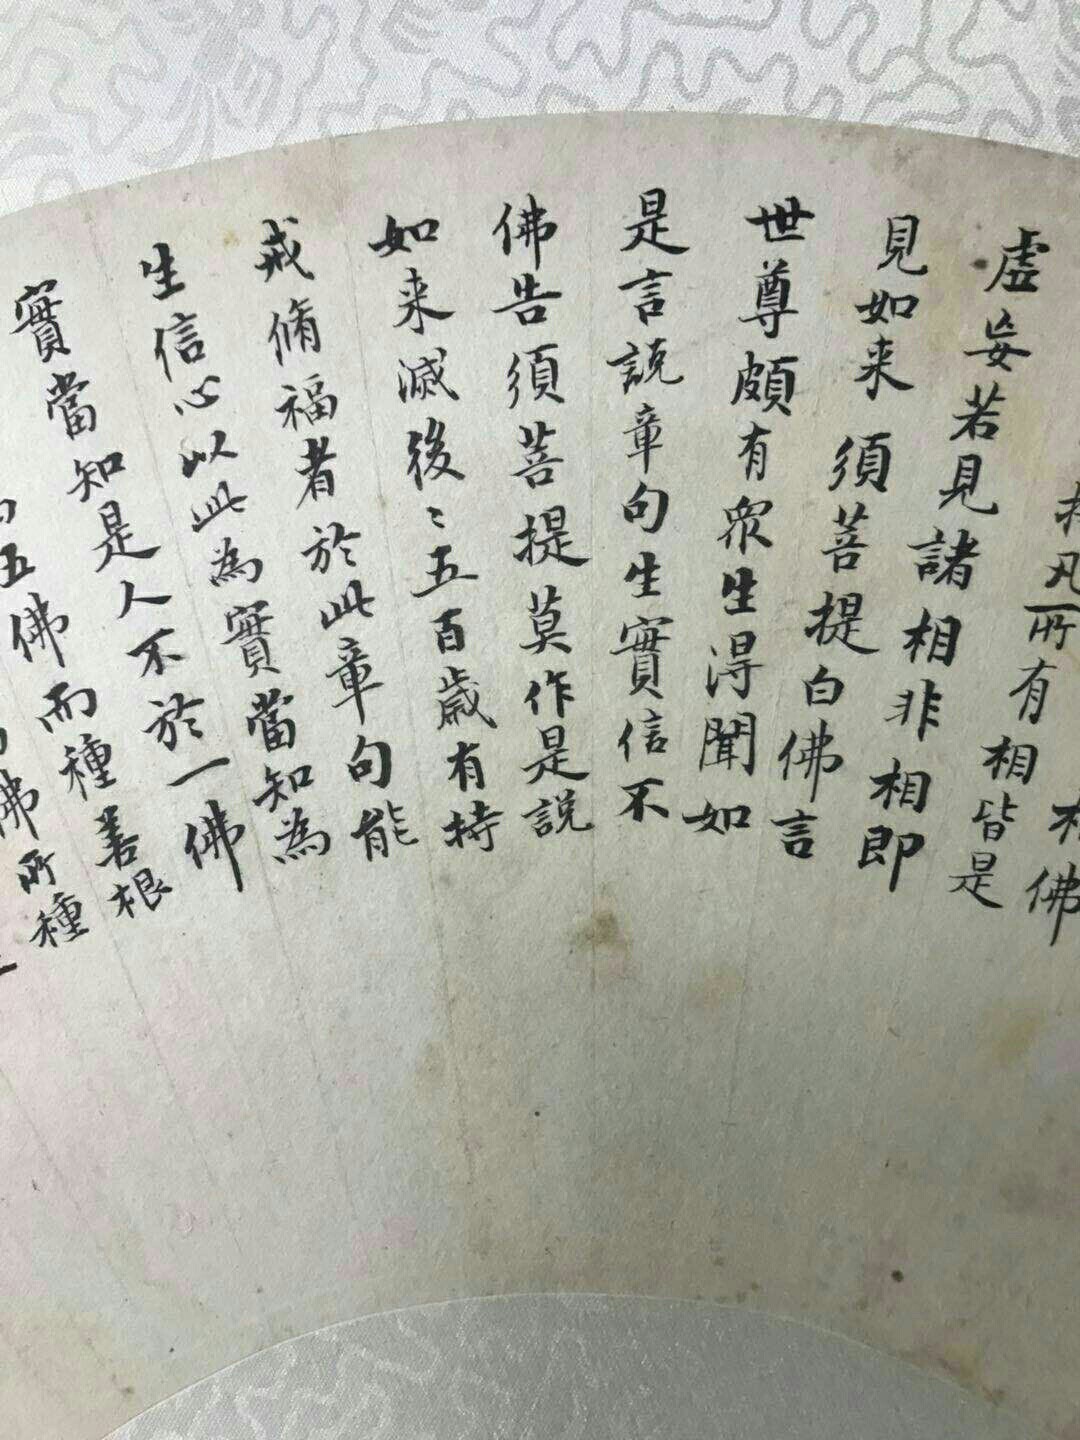 佛
凡所有相皆是
虛妄若見諸相非相即
見如来須菩提白佛言
世尊頗有眾生得聞如
是言說章句生實信不
佛告須菩提莫作是說
如来滅後〻五百歲有持
戒脩福者於此章句能
生信心以此為實當知為
實當知是人不於一佛
五佛而種善根
佛所種